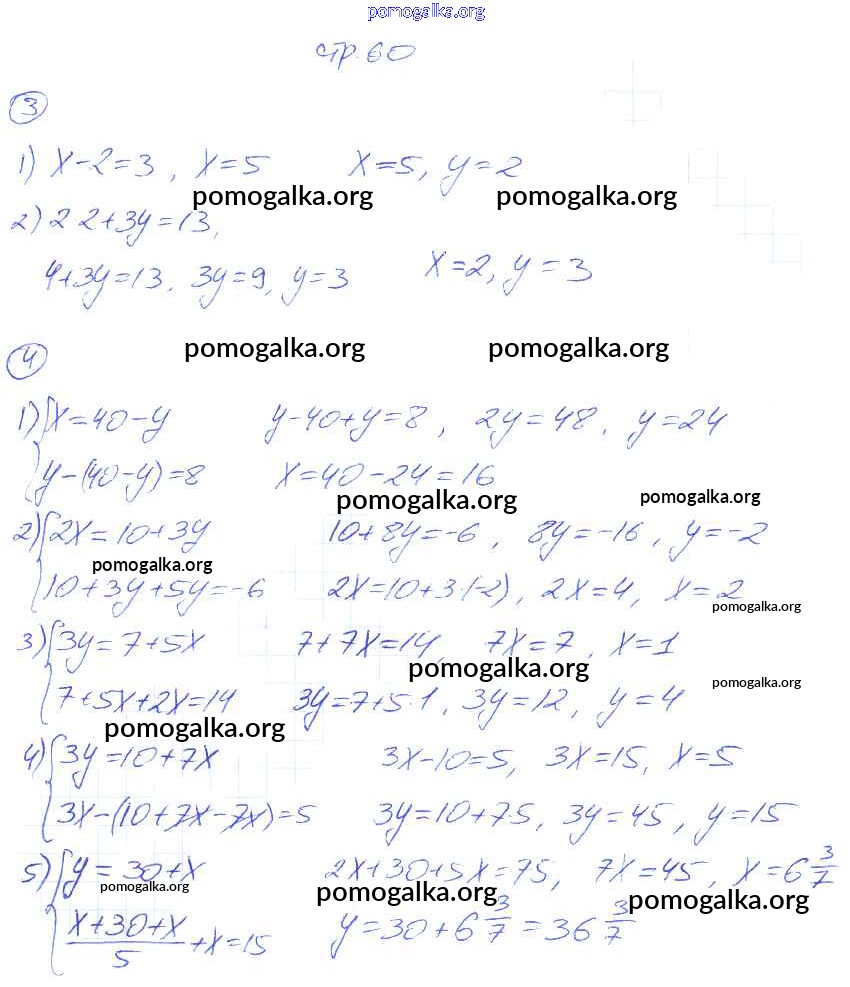 pomogalka.org
стр. 60
3
1) x-2=3, x=5 x=5, y=2
pomogalka.org pomogalka.org
2) 2 2+3y=13,
4+3y=13, 3y=9, y=3 x=2, y=3
pomogalka.org pomogalka.org
4
1) { x=40-y y-40+y=8, 2y=48, y=24
y-(40-y)=8 x=40-24=16
pomogalka.org pomogalka.org
2) { 2x=10+3y 10+8y=-6, 8y=-16, y=-2
pomogalka.org
10+3y+5y=-6 2x=10+3·(-2), 2x=4, x=2
pomogalka.org
3) { 3y=7+5x 7+7x=14, 7x=7, x=1
pomogalka.org pomogalka.org
7+5x+2x=14 3y=7+5·1, 3y=12, y=4
pomogalka.org
4) { 3y=10+7x 3x-10=5, 3x=15, x=5
3x-(10+7x-7x)=5 3y=10+7·5, 3y=45, y=15
5) { y=30+x 2x+30+5x=75, 7x=45, x=6 3/7
pomogalka.org pomogalka.org pomogalka.org
(x+30+x)/5+x=15 y=30+6 3/7=36 3/7